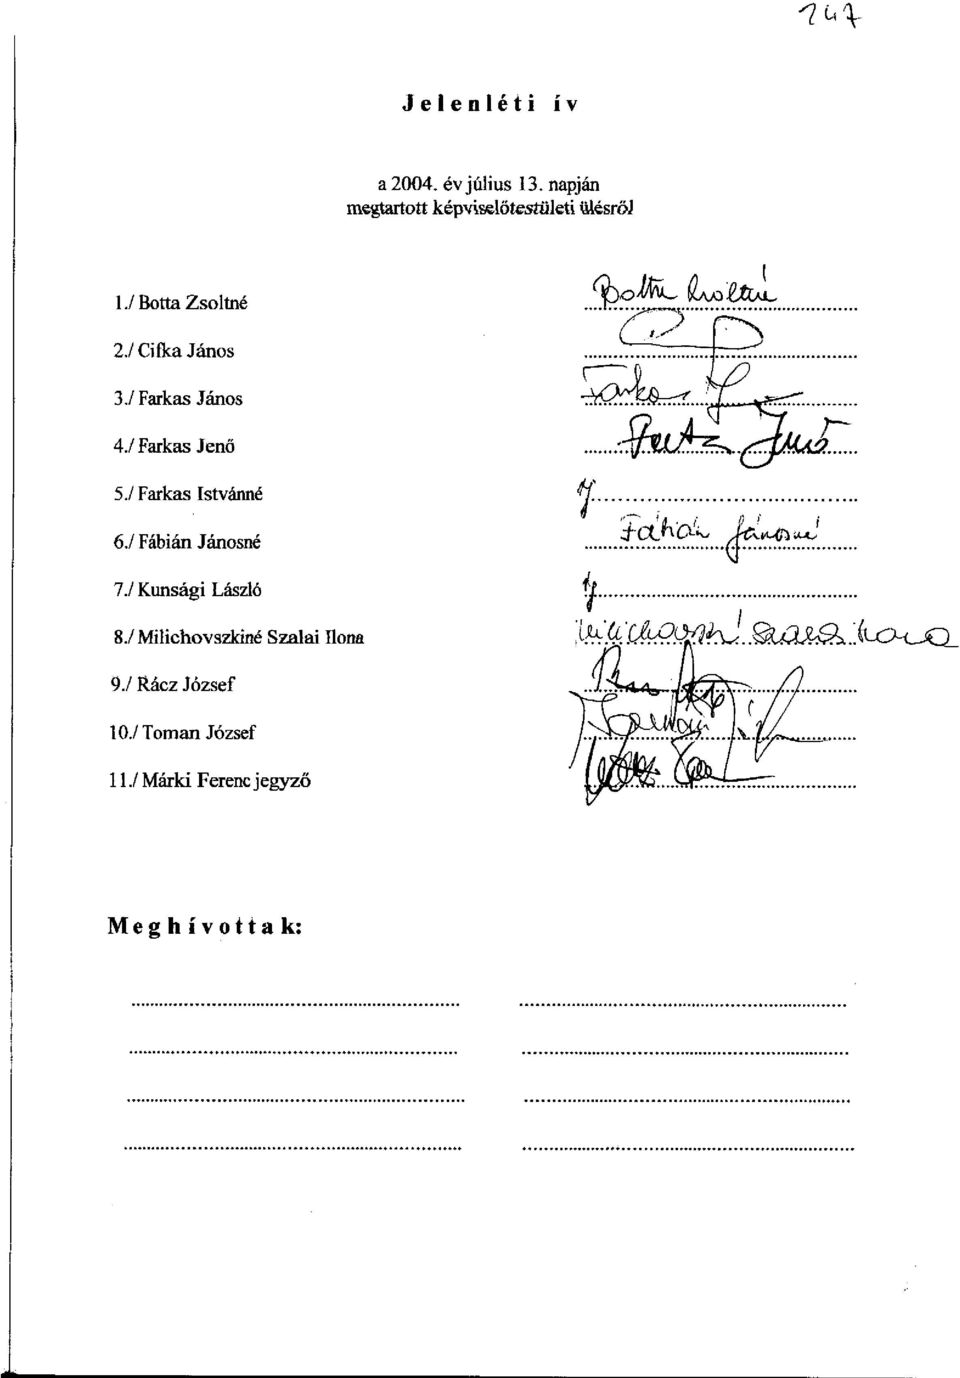 247
Jelenléti ív
a 2004. év július 13. napján
megtartott képviselőtestületi ülésről
1./ Botta Zsoltné Botta Zsoltné
2./ Cifka János
3./ Farkas János Farkas J
4./ Farkas Jenő Farkas Jenő
5./ Farkas Istvánné
6./ Fábián Jánosné Fábián Jánosné
7./ Kunsági László
8./ Milichovszkiné Szalai Ilona Milichovszkiné Szalai Ilona
9./ Rácz József
10./ Toman József
11./ Márki Ferenc jegyző
Meghívottak: